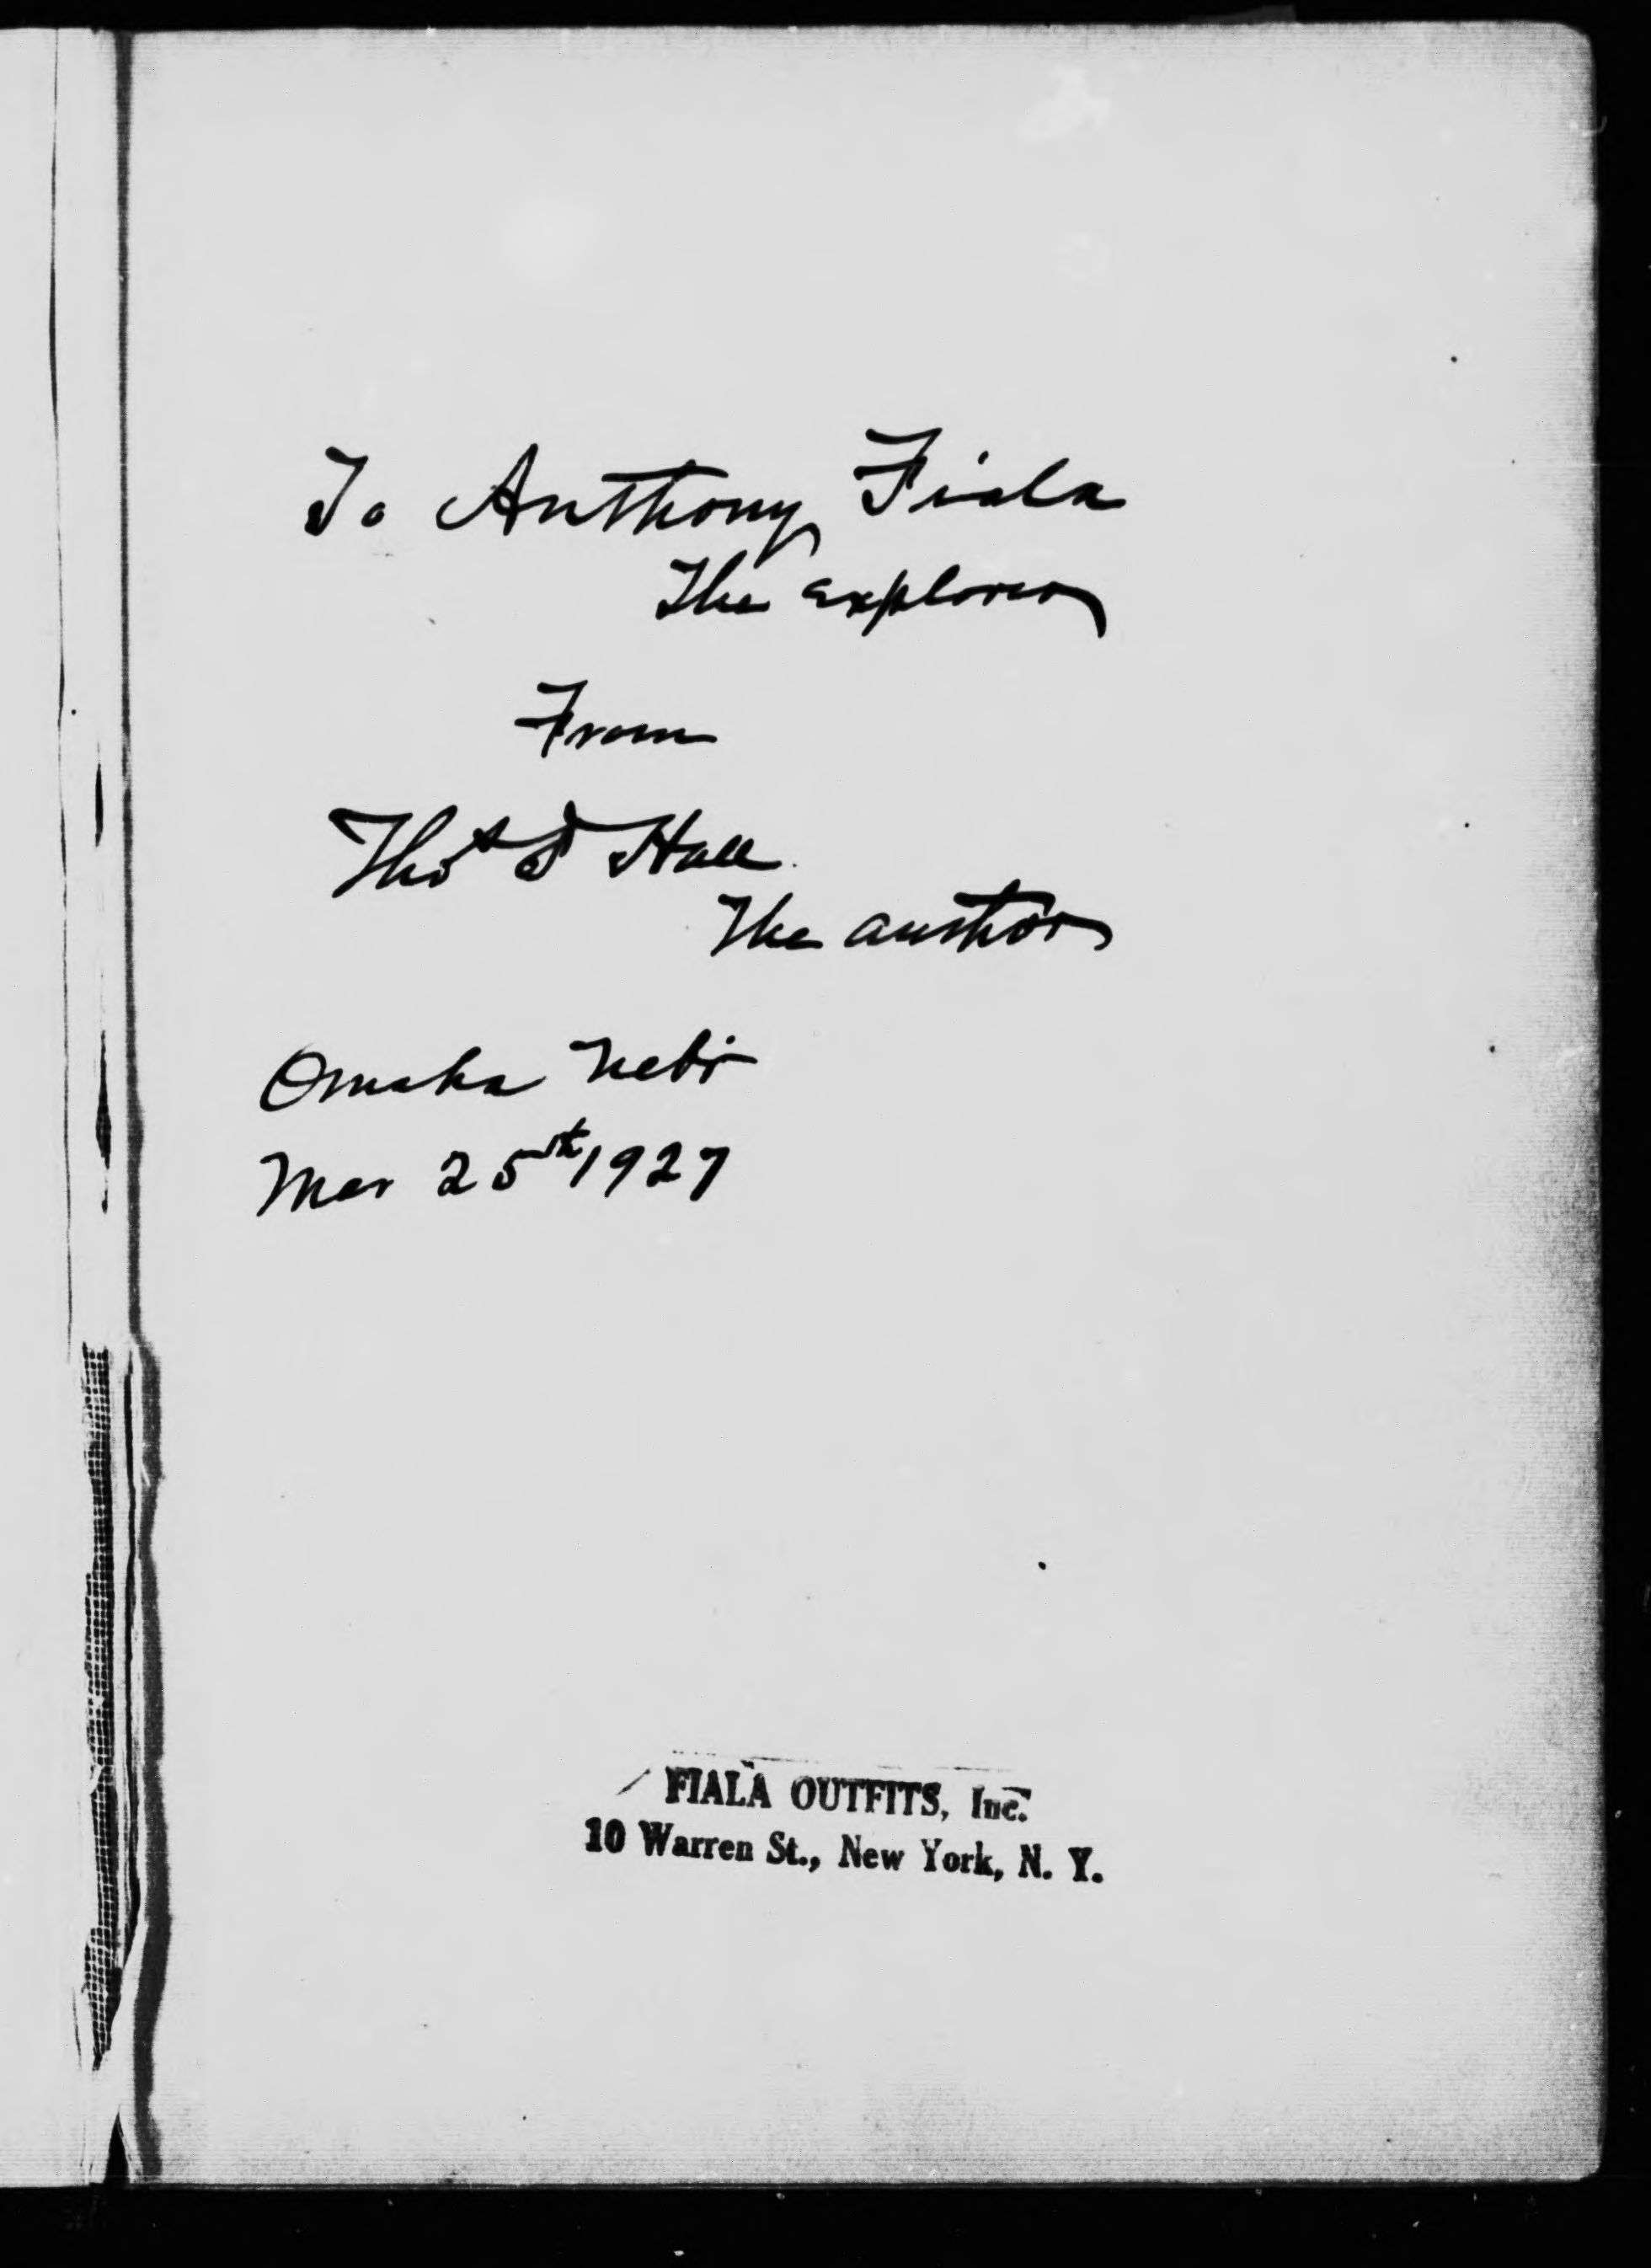 To Anthony Fiala
The explorer
From
Thos F Hall
The author
Omaha Nebr
Mar 25th 1927
FIALA OUTFITS, Inc.
10 Warren St., New York, N. Y.